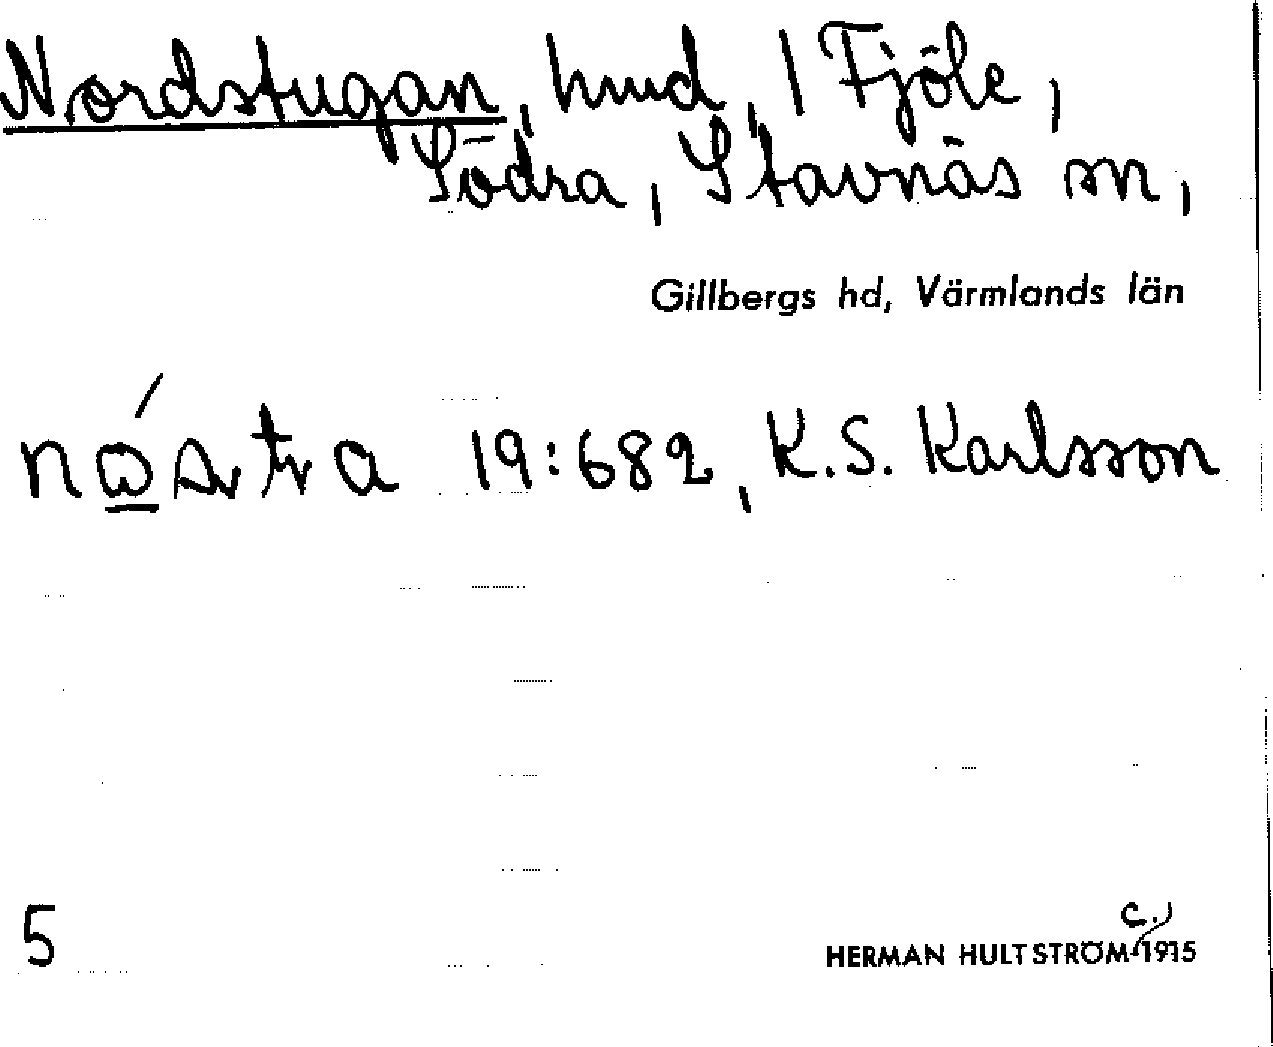 Nordstugan, hmd, 1 Fjöle,
Södra, Stavnäs sn,
Gillbergs hd, Värmlands län
19:682, K.S. Karlsson
5
c.
HERMAN HULTSTRÖM 1915